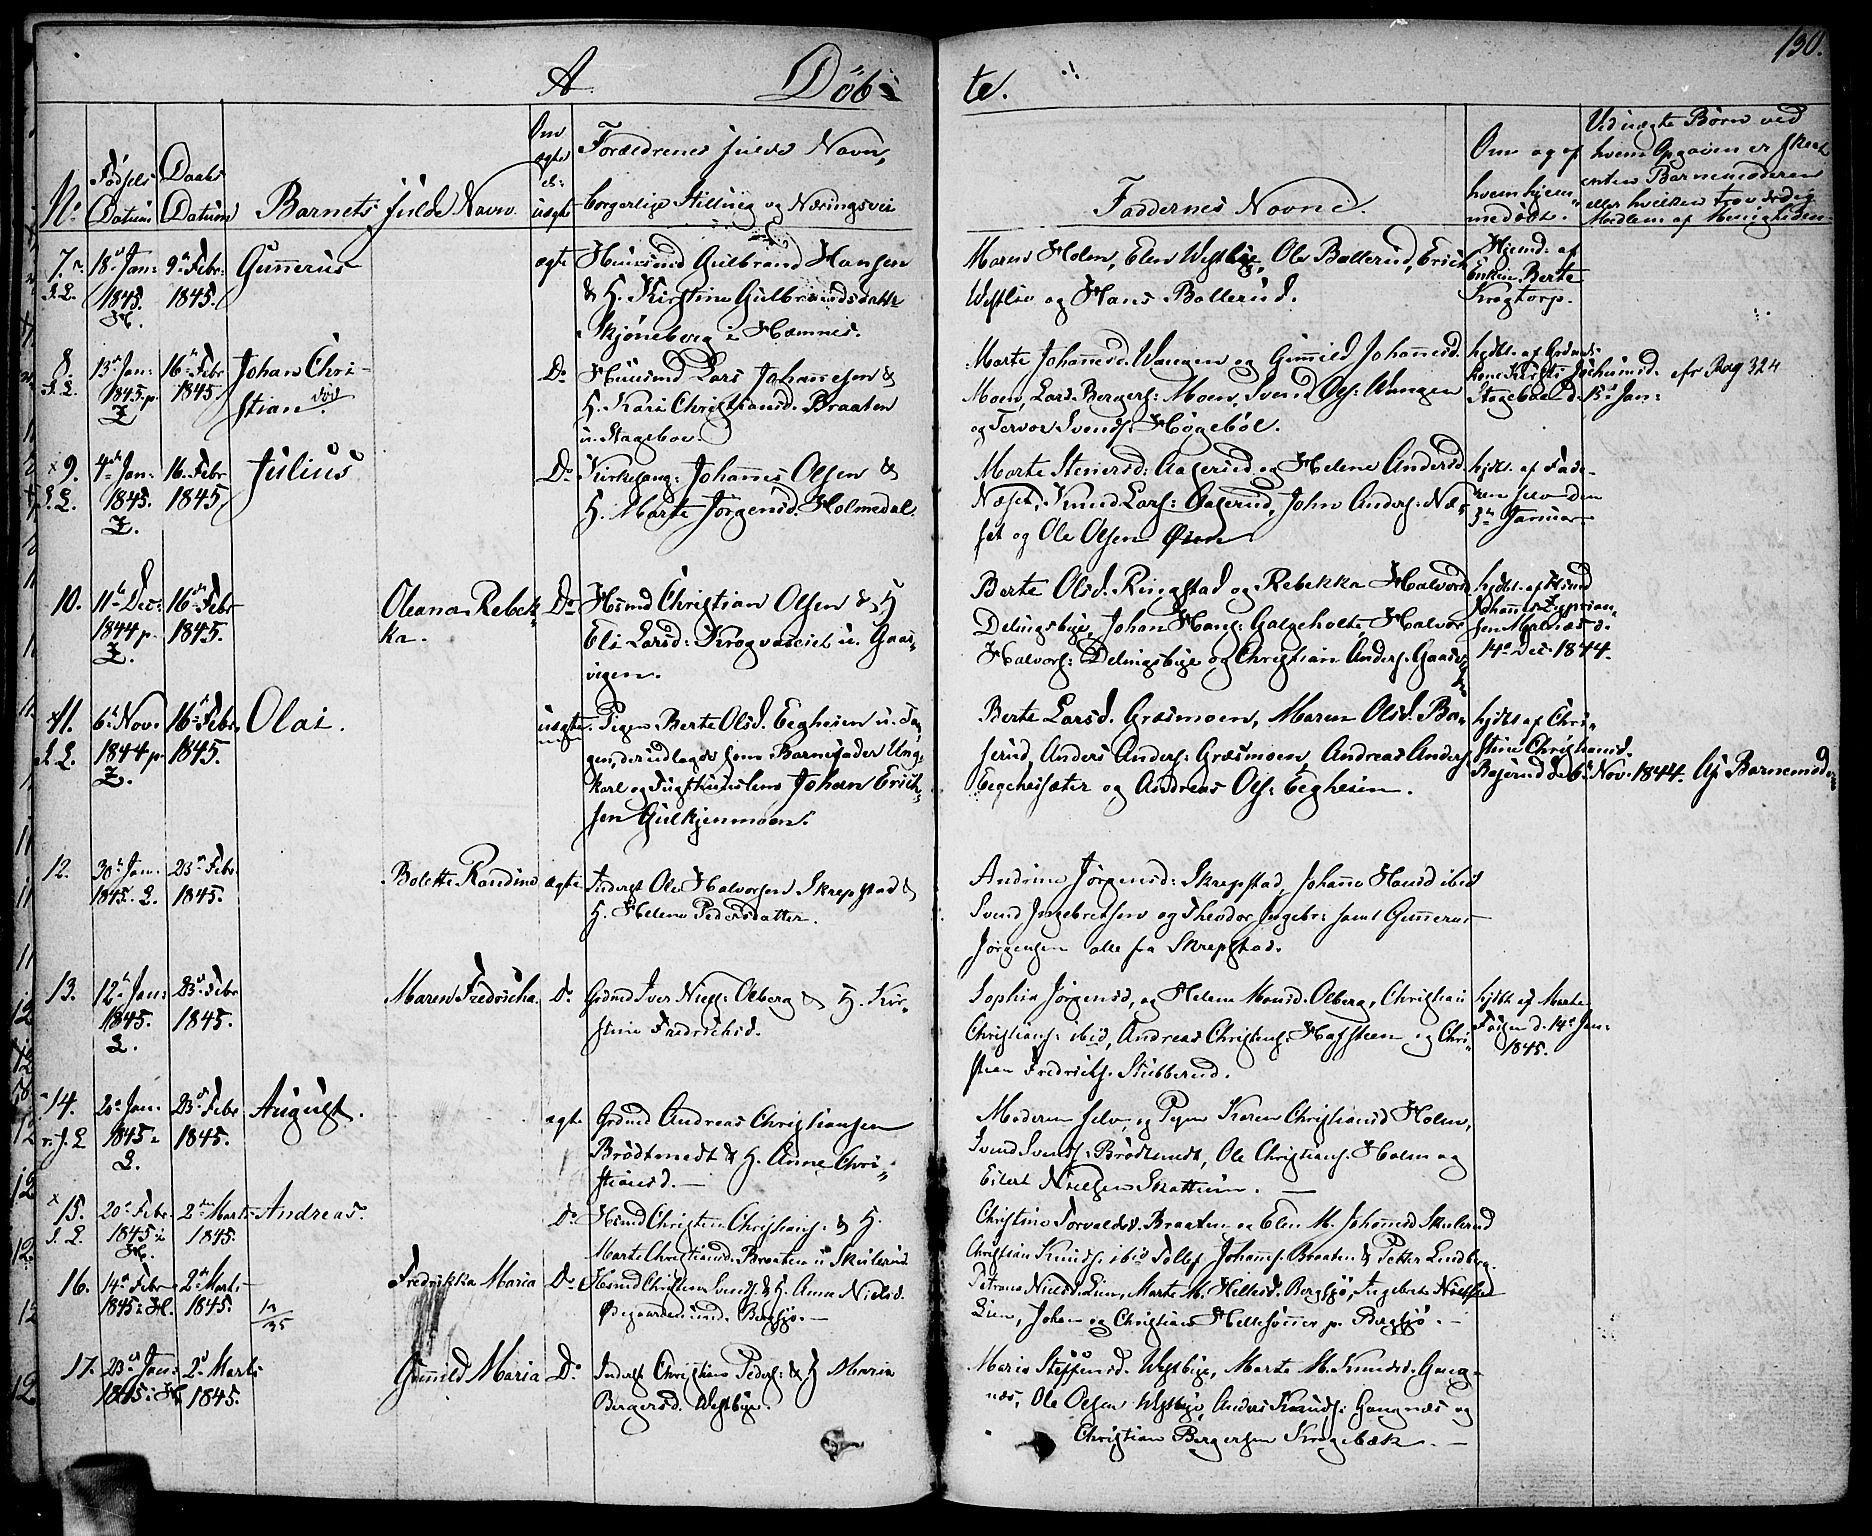 130.
A. Døb-
te.
No
Fødsels
Datum
Daabs
Datum
Barnets fulde Navn.
Om
ægte
el:
uægte
Forældrenes fulde Navn,
borgerlige Stilling og Næringsvei
Faddernes Navne.
Om og af
hvem hjem-
medøbt.
Ved uægte Børn ved
hvem Opgaven er skeet
enten Barnemoderen
eller hvilken troværdig
Medlem af Menigheden.
7. 18d Jan: 9de Febr: Gunerus ægte Huusmd Gulbrand Hansen
1845. 1845. & H. Kirstine Gulbrandsdatter
H. Skjøneberg i Hæmnes.
Maren Holm, Elen Westbye, Ole Bollerud, Erich
Westlie og Hans Bollerud.
Hjemd: af
Enken Berte
Krogtorp.
8. 13de Jan: 16de Febr Johan Chri- Do Huusmd Lars Johannesen &
1845. p. 1845. stian. død H. Kari Christiansd. Braaten
Z u. Stageboe
Marte Johannesd. Wangen og Gunild Johannesd.
Moen, Lars Bergers: Moen, Svend Ols: Wangen
og Torvor Svends. Høgebøl.
hjdbt. af Grdmds-
kone Kirsti Jochumsd. cfr Pag 324
Stageboe d. 15d Jan:
9. 4de Jan: 16. Febr Julius Do Kirkesang: Johannes Olsen &
1845. 1845. H. Marte Jørgensd. Holmedal.
Z.
Marte Stenersd: Aaserud og Helene Andersd
Næset, Knud Lars: Aaserud, John Anders: Næ-
set og Ole Olsen Øien
hjdbt. af Fade-
ren selv den
5de Januar
10. 11te Dec: 16de Febr Oleana Rebek- Do Hsmd Christian Olsen & H
1844 p. 1845. ka. Eli Larsd: Krogvaseiet u. Gaas-
Z. vigen.
Berte Olsd. Ringstad og Rebekka Halvorsd
Delingsbye, Johan Hans: Galgeholte, Halvor
Halvors: Delingsbye og Christian Anders. Gaasev-
hjdbt. af Hsmd
Johannes Zyprian-
sen Mælnæs d.
14de Dec. 1844.
11. 6te Nov. 16de Febr Olai. uægte. Pigen Berte Olsd. Eegheien u. Ta-
1844 p. 1845. gen, der udlagde som Barnefader Ung-
Z. karl og Tugthuuslem Johan Erich-
sen Gulkjenmoen.
Berte Larsd. Græsmoen, Maren Olsd. Ba-
serud, Anders Anders: Græsmoen, Andreas Anders:
Eegehesæter og Andreas Ols: Eegheien.
hjdbt af Chri-
stine Christiansd.
Baserud d. 6te Nov. 1844. Af Barnemod-
12. 30te Jan: 23de Febr Bolette Randine ægte Inderst Ole Halvorsen Skrepstad &
1845. L. 1845. H. Helene Pedersdatter.
Andrine Jørgensd: Skrepstad, Johanne Hansd ibid
Svend Ingebretsen og Theodor Ingebr: samt Gunerus
Jørgensen alle fra Skrepstad.
13. 12te Jan: 23de Febr Maren Fredrikka. Do Grdmd Iver Niels: Olberg & H. Kir-
1845. 1845. stine Fredriksd.
L.
Sophia Jørgensd, og Helene Monsd. Olberg, Christian
Christians: ibid, Andreas Christians: Haffsteen og Chri-
stian Fredriks. Stubberud.
hjdbt af Marte
Foigen d. 14de Jan:
1845.
14. 20de Jan: 23de Febr August. ægte Grdmd Andreas Christiansen
1845. 1845. Brødtmedt & H. Anne Chri-
L. stiansd. —
Moderen selv, og Pigen Karen Christiansd Holm,
Svend Svends: Brødtmedt, Ole Christians. Holm og
Eilert Nielsen Skattum. —
15. 20de Febr 2den Marts Andreas. Do Hsmd Christen Christians: & H.
1845 i 1845. Marte Christiansd. Braaten u. Skulerud
H.
Christine Torvaldsd. Braaten og Elen M. Johannesd Skulerud
Christian Knuds. ibid Tollef Johanns. Braaten & Petter Lundberg.
16. 14de Febr 2den Marts Fredrikka Maria Do Hsmd Christian Svends. & H. Anne Nielsd.
1845 i H. 1845. Ødegaarden und. Bergsjø. —
Petrine Nielsd. Lien, Marte M. Hellesd. Bergsjø, Ingebret Nielsen
Lien, Johan og Christian Hellesønner p. Bergsjø. —
17. 23de Jan: 2d Marts Gunild Maria Do Inderst Christian Peders: & H Maria
1845 i H. 1845. Bergersd. Westbye.
Maria Steffensd. Westbye, Marte M. Knudsd. Gang-
næs, Ole Olsen Westbye, Anders Knuds: Gangnæs og
Christian Bergersen Krogebæk. —